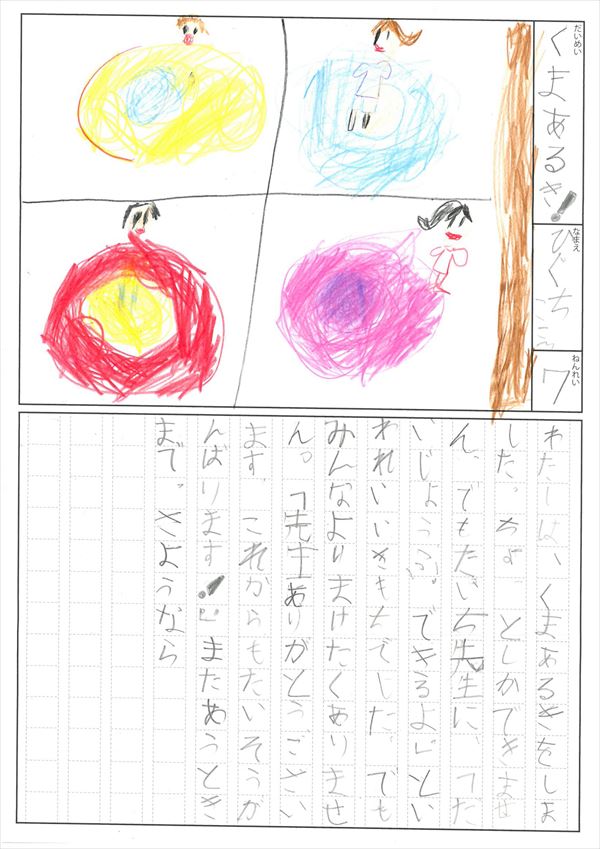 だいめい
くまあるき!
なまえ
ひぐち
ねんれい
7
わたしは、くまあるきをしま
した。ちょっとしかできませ
ん、でもたいち先生に、「だ
いじょうぶ。できるよ」とい
われいいきもちでした。でも
みんなよりまけたくありませ
ん。「先生ありがとうござい
ます。これからもたいそうが
んばります!」またあうとき
まで。さようなら